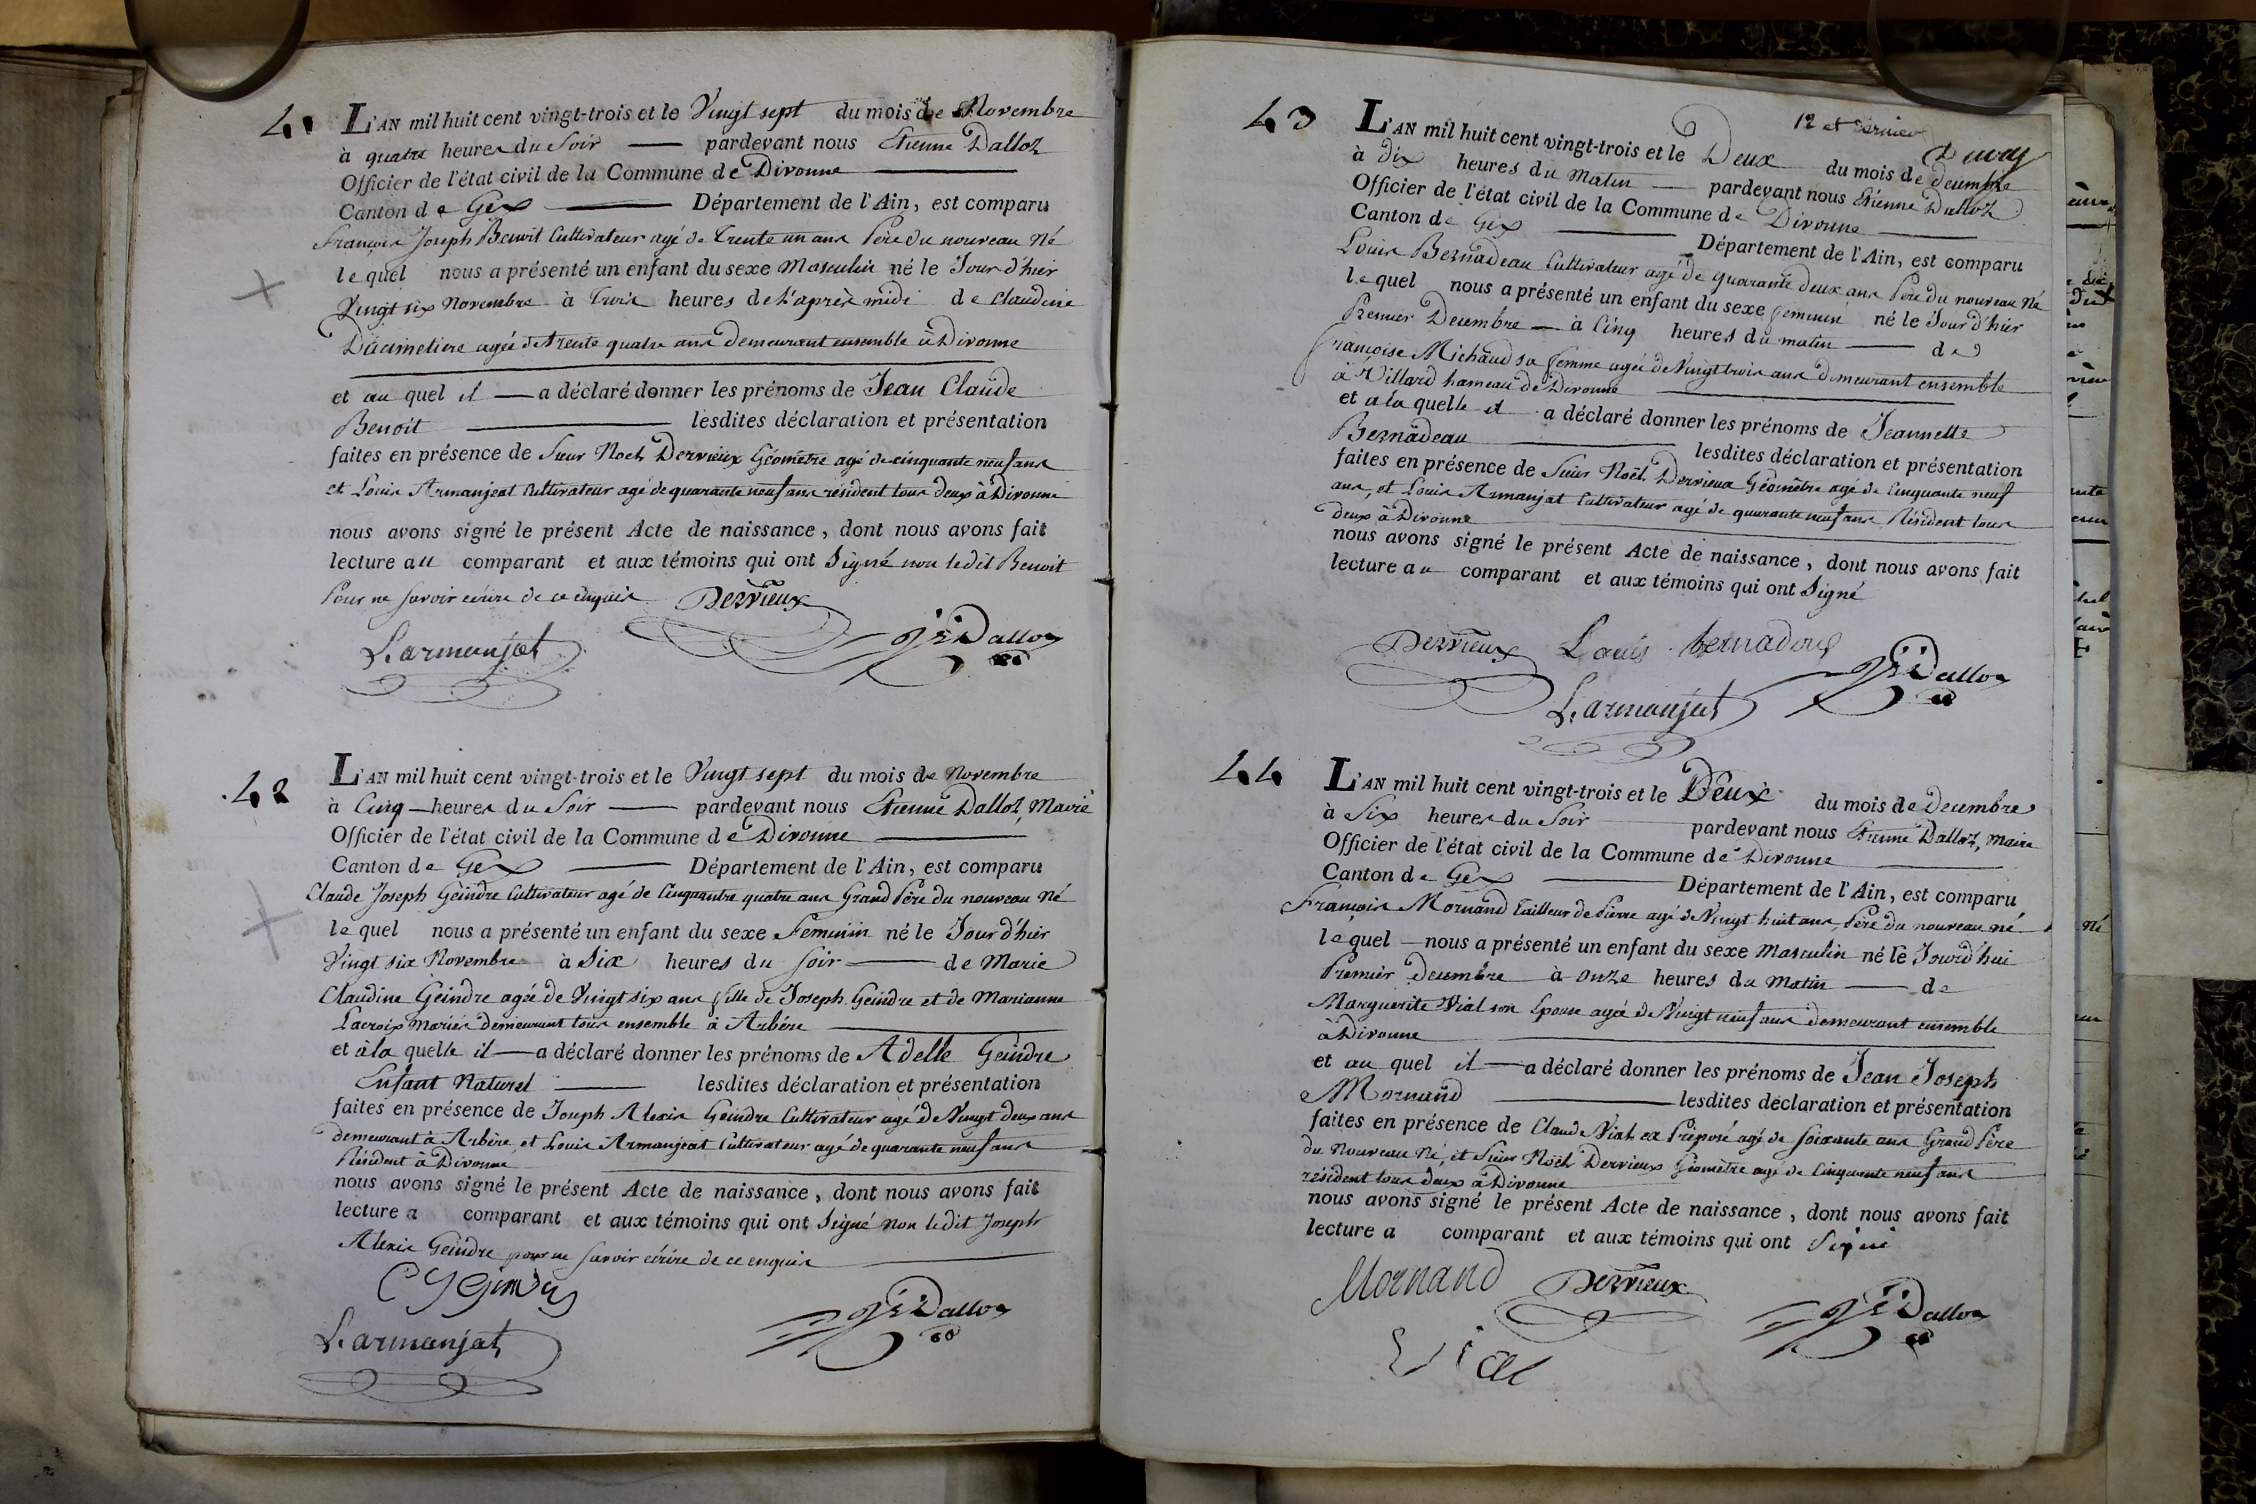 41
L'AN mil huit cent vingt-trois et le Vingt sept du mois de Novembre
à quatre heures du Soir pardevant nous Etienne Dalloz
Officier de l'état civil de la Commune de Divonne
Canton de Gex Département de l'Ain, est comparu
François Joseph Benoit Cultivateur agé de Trente un ans Père du nouveau Né
lequel nous a présenté un enfant du sexe Masculin né le Jour d'hier
Vingt six Novembre à Trois heures de l'après midi de Claudine
agée de trente quatre ans demeurant ensemble à Divonne
et au quel il a déclaré donner les prénoms de Jean Claude
Benoit lesdites déclaration et présentation
faites en présence de Sieur Noël Dervieux Géomètre agé de cinquante neuf ans
et Louis Armanjeat Cultivateur agé de quarante neuf ans résident tous deux à Divonne
nous avons signé le présent Acte de naissance, dont nous avons fait
lecture au comparant et aux témoins qui ont Signé non ledit Benoit
Pour ne savoir écrire de ce enquis Dervieux
L. armanjat Dalloz
42
L'AN mil huit cent vingt-trois et le Vingt sept du mois de Novembre
à Cinq heures du Soir pardevant nous Etienne Dalloz, Maire
Officier de l'état civil de la Commune de Divonne
Canton de Gex Département de l'Ain, est comparu
Claude Joseph Geindre Cultivateur agé de Cinquante quatre ans Grand Père du nouveau Né
lequel nous a présenté un enfant du sexe Feminin né le Jour d'hier
Vingt six Novembre à Six heures du soir de Marie
Claudine Geindre agée de Vingt six ans fille de Joseph Geindre et de Marianne
Lacroix Mariés demeurant tous ensemble à Arbère
et à la quelle il a déclaré donner les prénoms de Adelle Geindre
Enfant Naturel lesdites déclaration et présentation
faites en présence de Joseph Alexis Geindre Cultivateur agé de Vingt deux ans
demeurant à Arbère, et Louis Armanjeat Cultivateur agé de quarante neuf ans
Résident à Divonne
nous avons signé le présent Acte de naissance, dont nous avons fait
lecture a comparant et aux témoins qui ont Signé non ledit Joseph
Alexis Geindre pour ne savoir écrire de ce enquis
L. armanjat Dalloz
12 et dernier
43
L'AN mil huit cent vingt-trois et le Deux du mois de decembre
à Dix heures du Matin pardevant nous Etienne Dalloz
Officier de l'état civil de la Commune de Divonne
Canton de Gex Département de l'Ain, est comparu
Louis Bernadeau Cultivateur agé de quarante deux ans Père du nouveau Né
lequel nous a présenté un enfant du sexe feminin né le Jour d'hier
Premier Decembre à Cinq heures du matin de
Françoise Michaud sa femme agée de Vingt trois ans demeurant ensemble
à Villard hameau de Divonne
et a la quelle il a déclaré donner les prénoms de Jeannette
Bernadeau lesdites déclaration et présentation
faites en présence de Sieur Noël Dervieux Géomètre agé de Cinquante neuf
ans, et Louis Armanjat Cultivateur agé de quarante neuf ans Résident tous
deux à Divonne
nous avons signé le présent Acte de naissance, dont nous avons fait
lecture au comparant et aux témoins qui ont Signé
Dervieux Louis bernadou Dalloz
L. armanjat
44
L'AN mil huit cent vingt-trois et le Deux du mois de Decembre
à Six heures du Soir pardevant nous Etienne Dalloz, Maire
Officier de l'état civil de la Commune de Divonne
Canton de Gex Département de l'Ain, est comparu
François Mornand Tailleur de Pierre agé de Vingt huit ans, Père du nouveau né
lequel nous a présenté un enfant du sexe Masculin né le Jourd'hui
Premier Decembre à Onze heures du Matin de
Marguerite Vial son Epouse agée de Vingt neuf ans demeurant ensemble
à Divonne
et au quel il a déclaré donner les prénoms de Jean Joseph
Mornand lesdites déclaration et présentation
faites en présence de Claude Vial ex Préposé agé de soixante ans Grand Père
du Nouveau Né, et Sieur Noël Dervieux Géomètre agé de Cinquante neuf ans
résident tous deux à Divonne
nous avons signé le présent Acte de naissance, dont nous avons fait
lecture a comparant et aux témoins qui ont Signé
Mornand Dervieux Dalloz
Vial